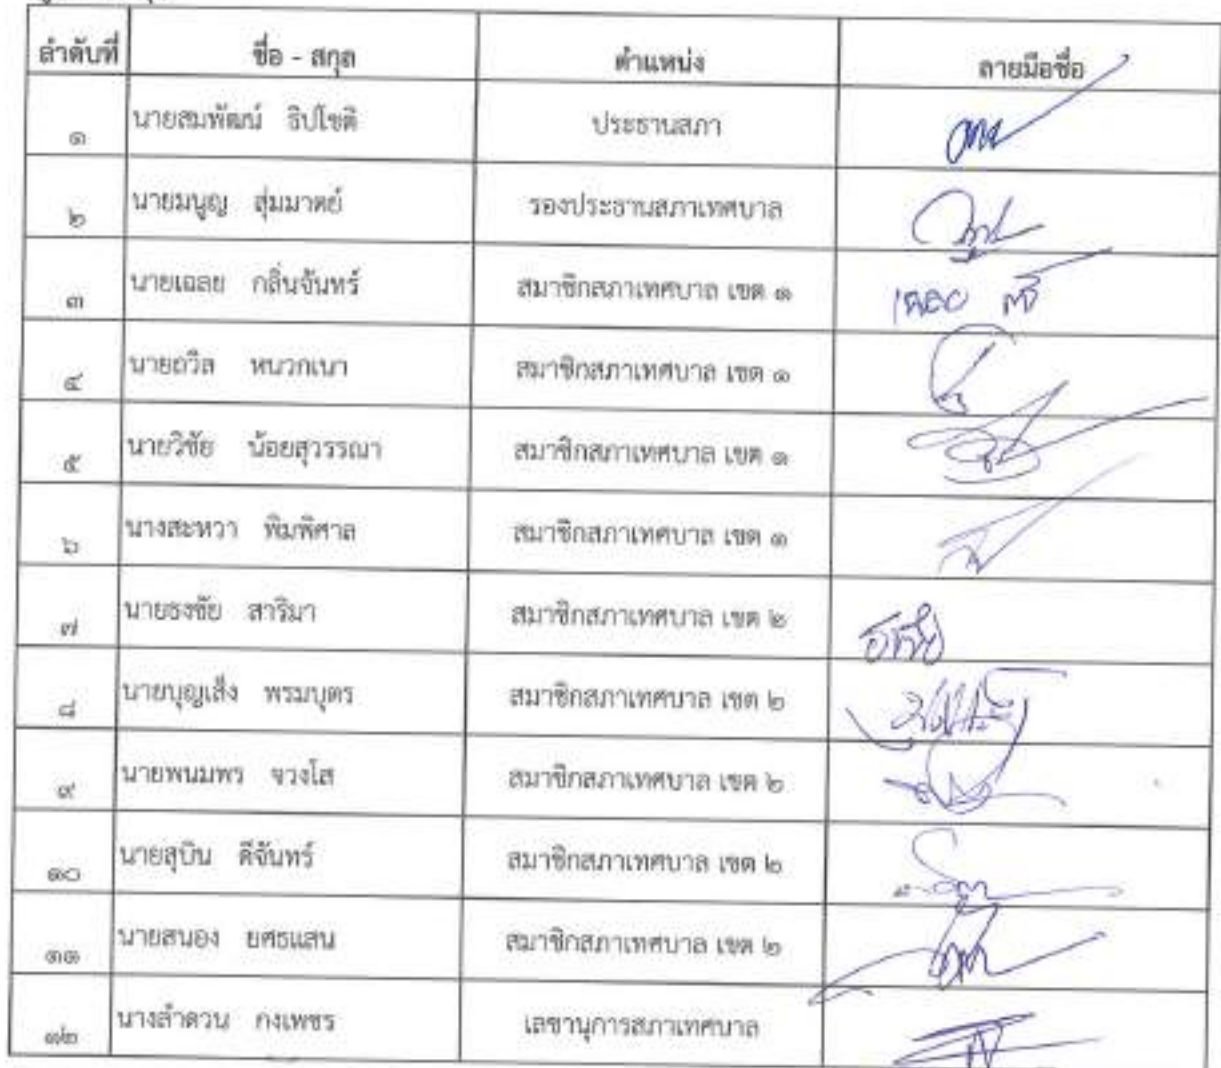 ลำดับที่ ชื่อ - สกุล ตำแหน่ง ลายมือชื่อ
๑ นายสมพัฒน์ ธิปโชติ ประธานสภา
๒ นายมนูญ สุ่มมาตย์ รองประธานสภาเทศบาล
๓ นายเฉลย กลิ่นจันทร์ สมาชิกสภาเทศบาล เขต ๑
๔ นายถวิล หนวกเนา สมาชิกสภาเทศบาล เขต ๑
๕ นายวิชัย น้อยสุวรรณา สมาชิกสภาเทศบาล เขต ๑
๖ นางสะหวา พิมพิศาล สมาชิกสภาเทศบาล เขต ๑
๗ นายธงชัย สาริมา สมาชิกสภาเทศบาล เขต ๒
๘ นายบุญเส็ง พรมบุตร สมาชิกสภาเทศบาล เขต ๒
๙ นายพนมพร จวงโส สมาชิกสภาเทศบาล เขต ๒
๑๐ นายสุบิน ดีจันทร์ สมาชิกสภาเทศบาล เขต ๒
๑๑ นายสนอง ยศธแสน สมาชิกสภาเทศบาล เขต ๒
๑๒ นางลำดวน กงเพชร เลขานุการสภาเทศบาล